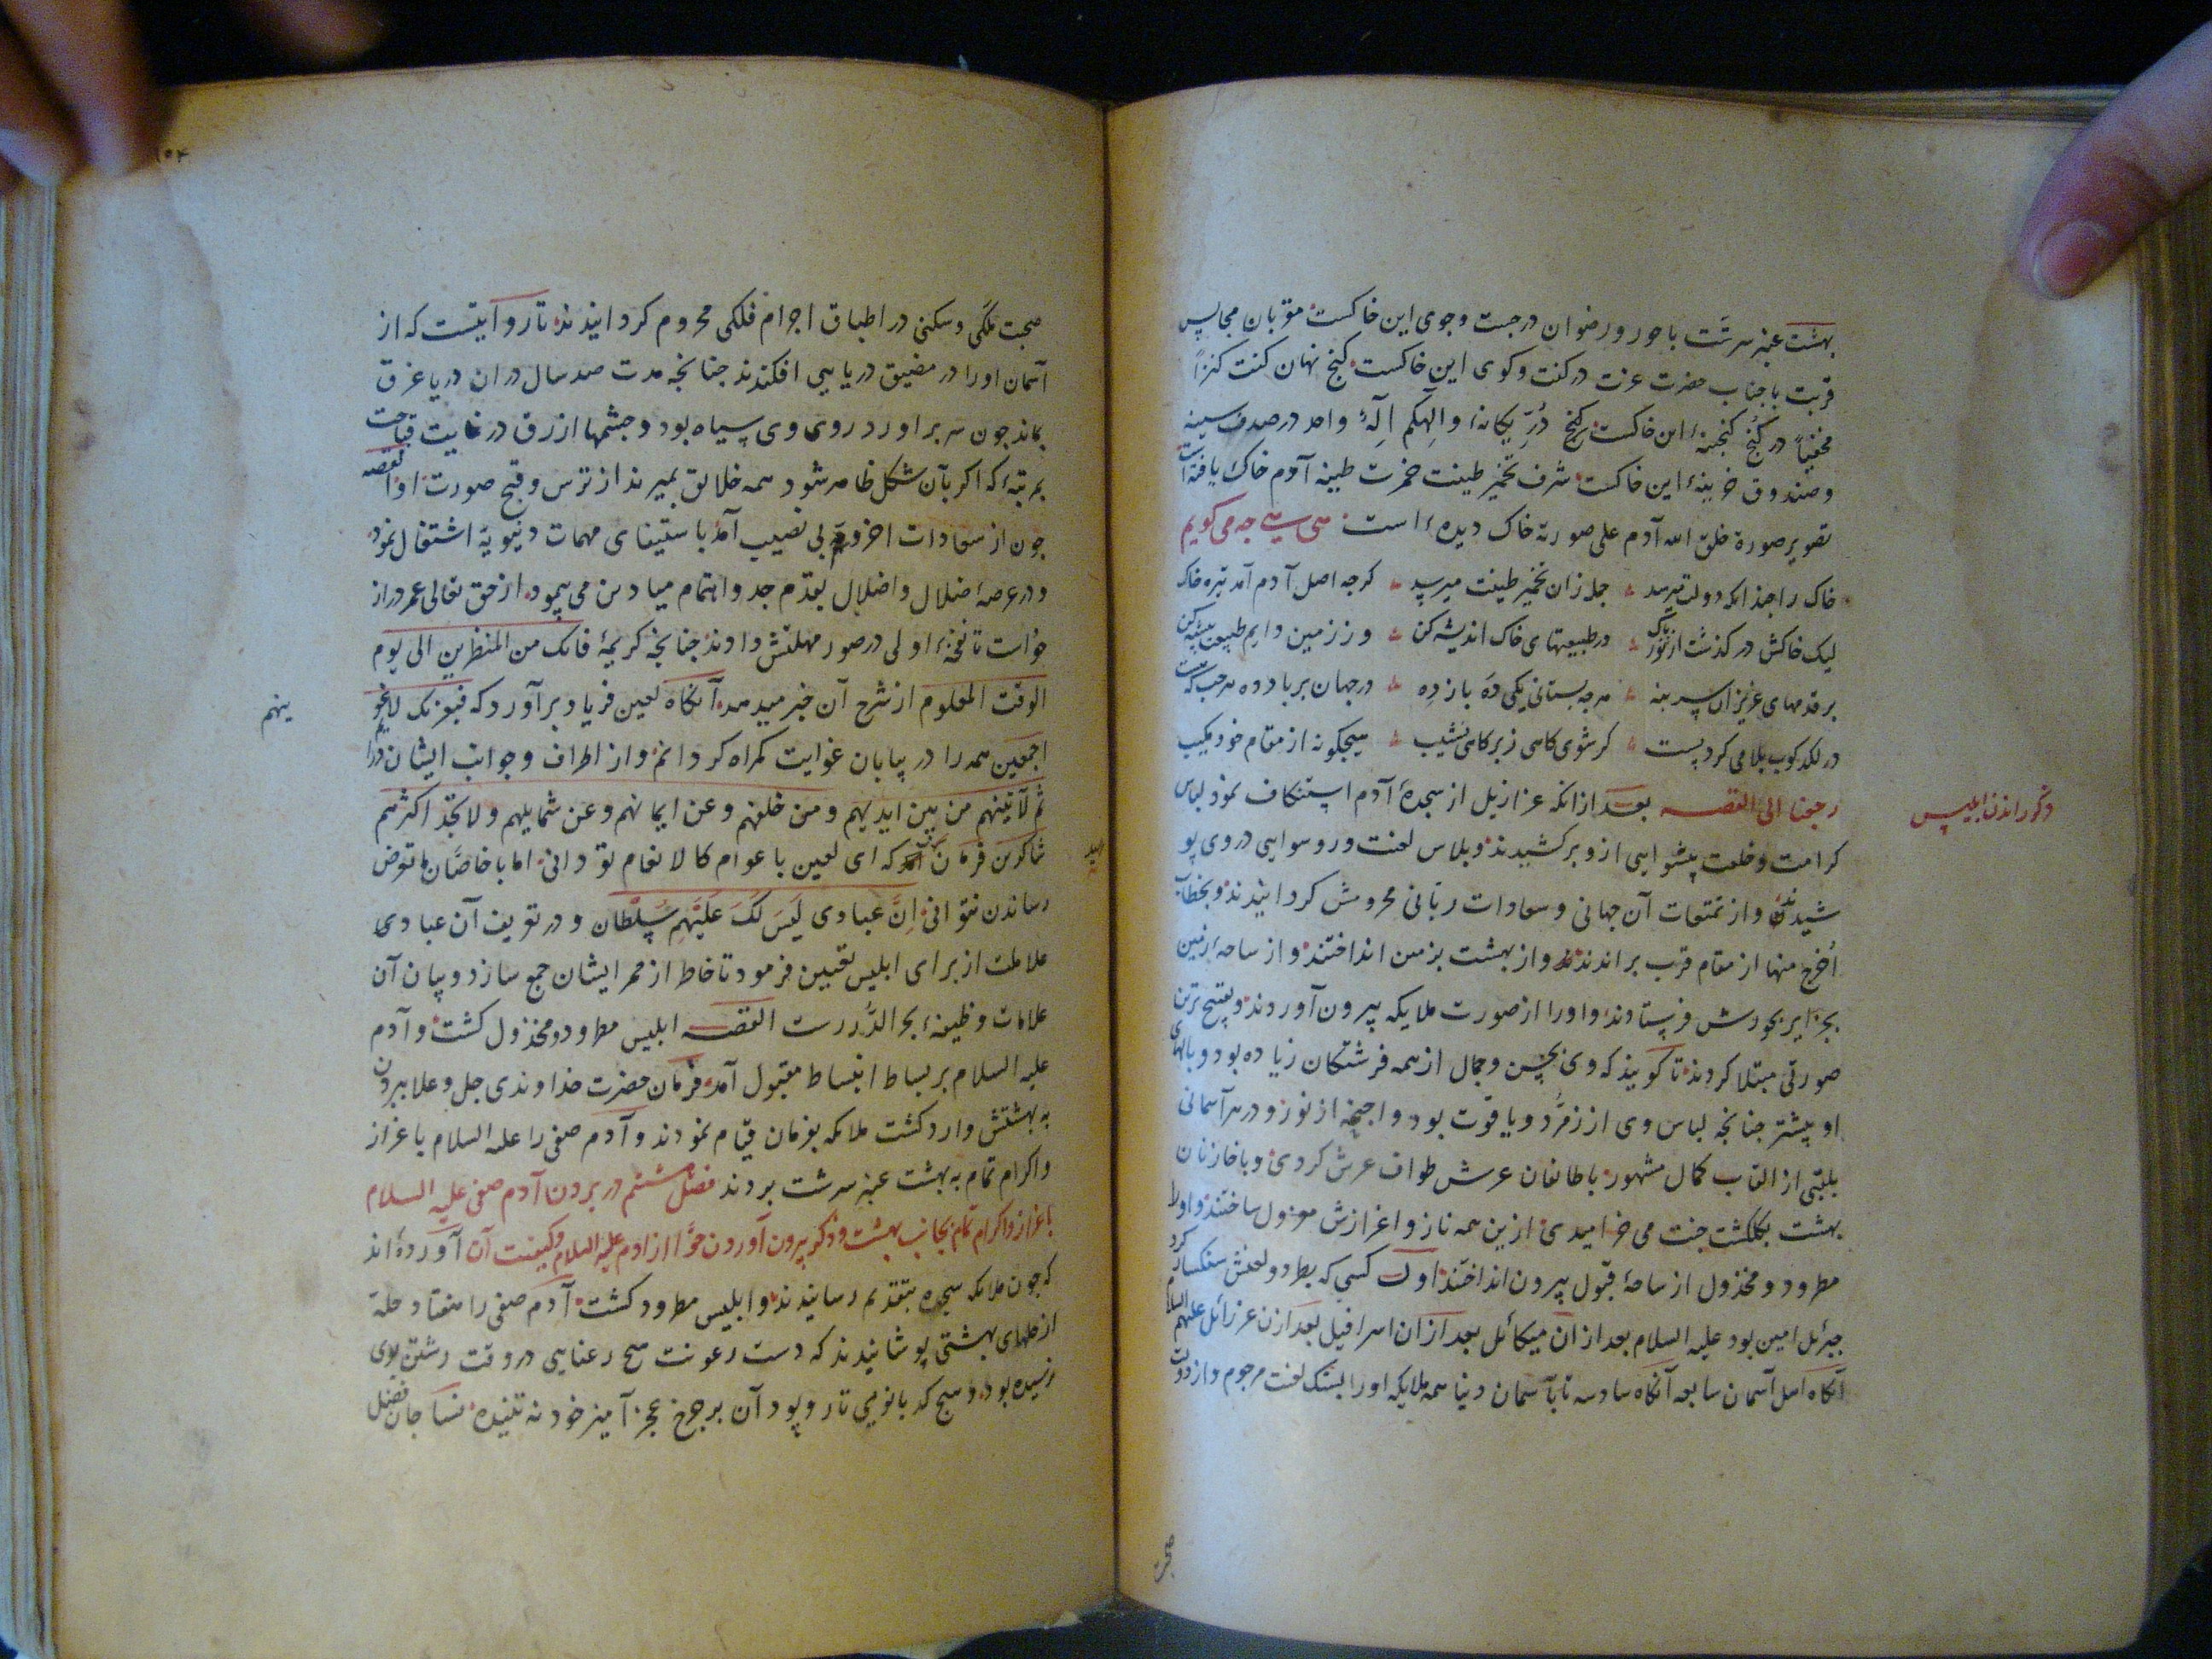 بهشت عنبر سرشت با حور و رضوان در جست و جوی این خاکست مقربان مجالس
قربت با جناب حضرت عزت در کفت و کوی این خاکست کنج نهان کنت کنزاً
مخفیاً در کُنج کنجینهٔ این خاکست کنج دُرِّ یکانهٔ و الهکم الهٌ واحد در صدف سینه
و صندوق خزینهٔ این خاکست شرف تخمیر طینت خمرت طینه آدم خاک یافته است
تصویر صورة خلق الله آدم علی صورته خاک دیده است می کویم
خاک را جذ انکه دولت میرسد جمله زان تخمیر طینت میرسد کرجه اصل آدم آمد تیره خاک
لیک خاکش در کذشت از نور پاک در طبیعتهای خاک اندیشه کن و ز زمین دایم طبیعت پیشه کن
بر قدمهای عزیزان سر بنه هرجه بستانی یکی ده باز ده در جهان بر باد وه هر حب که هست
در لکدکوب بلا می کرد پست کر شوی کاهی زبر کاهی نشیب هیجکونه از مقام خود مکیب
رجعنا الی القصه بعد ازانکه عزازیل از سجدهٔ آدم استنکاف نمود لباس
ذکر راندن ابلیس
کرامت و خلعت پیشوایی ازو برکشیدند و پلاس لعنت و رسوایی در وی پو
شیدند و از تمتعات آن جهانی و سعادات ربانی محرومش کردانیدند و بخطاب
اُخرج منها از مقام قرب براندند و از بهشت بزمین انداختند و از ساحهٔ زمین
بجزایر بحورش فرستادند و او را از صورت ملایکه بیرون آوردند و بقبیح ترین
صورتی مبتلا کردند تا کویند که وی بحسن و جمال از همه فرشتکان زیاده بود و بالهای
او بیشتر جنانجه لباس وی از زمرّد و یاقوت بود و اجنحه از نور و در هر آسمانی
بلقبی از القاب کمال مشهور با طائفان عرش طواف عرش کردی و با خازنان
بهشت بکلکشت جنت می خرامیدی ازین همه ناز و اعزازش معزول ساختند و او را
مطرود و مخذول از ساحهٔ قبول بیرون انداختند اول کسی که بطرد و لعنش سنکسار کرد
جبرئیل امین بود علیه السلام بعد ازان میکائیل بعد ازان اسرافیل بعد ازان عزرائیل علیهم السلام
آنکاه اهل آسمان سابعه آنکاه سادسه تا بآسمان دنیا همه ملایکه او را بسنک لعنت مرجوم و از دولت
صحبت
۱۰۴
صحبت ملکی و سکنی در اطباق اجرام فلکی محروم کردانیدند تا روایتست که از
آسمان او را در مضیق دریایی افکندند جنانجه مدت صد سال در ان دریا غرق
بماند جون سر براورد روی وی سیاه بود و جشمها ازرق در غایت قباحت
بمرتبهٔ که اکر بآن شکل ظاهر شود همه خلایق بمیرند از ترس و قبح صورت او القصه
جون از سعادات اخروی بی نصیب آمد باستیفای مهمات دنیویة اشتغال نمود
و در عرصهٔ ضلال و اضلال بقدم جد و اهتمام میادین می پیمود از حق تعالی عمر دراز
خواست تا نفخهٔ اولی در صور مهلتش دادند جنانجه کریمهٔ فانک من المنظرین الی یوم
الوقت المعلوم از شرح آن خبر میدهد آنکاه لعین فریاد برآورد که فبعزتک لاغو
ینهم
اجمعین همه را در بیابان غوایت کمراه کردانم و از اطراف و جوانب ایشان درایم
ثم لآتینهم من بین ایدیهم و من خلفهم و عن ایمانهم و عن شمایلهم و لا تجد اکثرهم
شاکرین فرمان آمد که ای لعین با عوام کالانعام تو دانی اما با خاصّان ما تعرض
رساندن نتوانی اِنَّ عبادی لَیسَ لَکَ عَلَیهِم سُلطان و در تعریف آن عبادی
علامات از برای ابلیس تعیین فرمود تا خاطر از ممر ایشان جمع سازد و بیان آن
علامات وظیفهٔ بحر الدُّررست القصه ابلیس مطرود و مخذول کشت و آدم
علیه السلام بر بساط انبساط مقبول آمد فرمان حضرت خداوندی جل و علا ببردن
به بهشتش وارد کشت ملایکه بفرمان قیام نمودند و آدم صفی را علیه السلام باعزاز
و اکرام تمام به بهشت عنبر سرشت بردند فصل هشتم در بردن آدم صفی علیه السلام
باعزاز و اکرام تمام بجانب بهشت و ذکر بیرون آوردن حوّا از ادم علیه السلام و کیفیت آن آورده اند
که جون ملایکه سجده بتقدیم رسانیدند و ابلیس مطرود کشت آدم صفی را هفتاد حلهٔ
از حلهای بهشتی پوشانیدند که دست رعونت هیج رعنایی در وقت رشتن بوی
نرسیده بود و هیج کدبانویی تار و پود آن بر جرخ عجز آمیز خود نه تنیده نساجان فضل